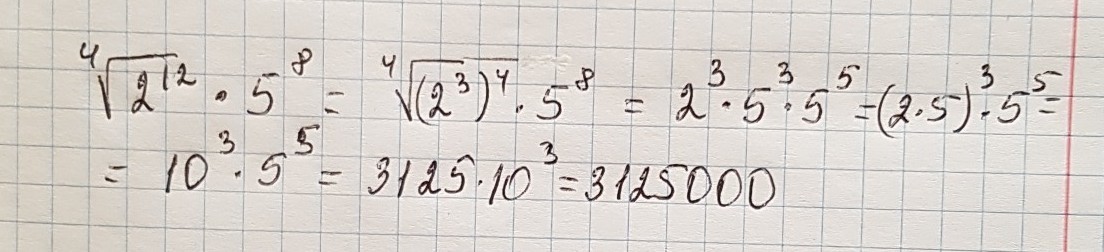 ⁴√2¹² · 5⁸ = ⁴√(2³)⁴ · 5⁸ = 2³ · 5³ · 5⁵ = (2·5)³ · 5⁵ =
= 10³ · 5⁵ = 3125 · 10³ = 3125000